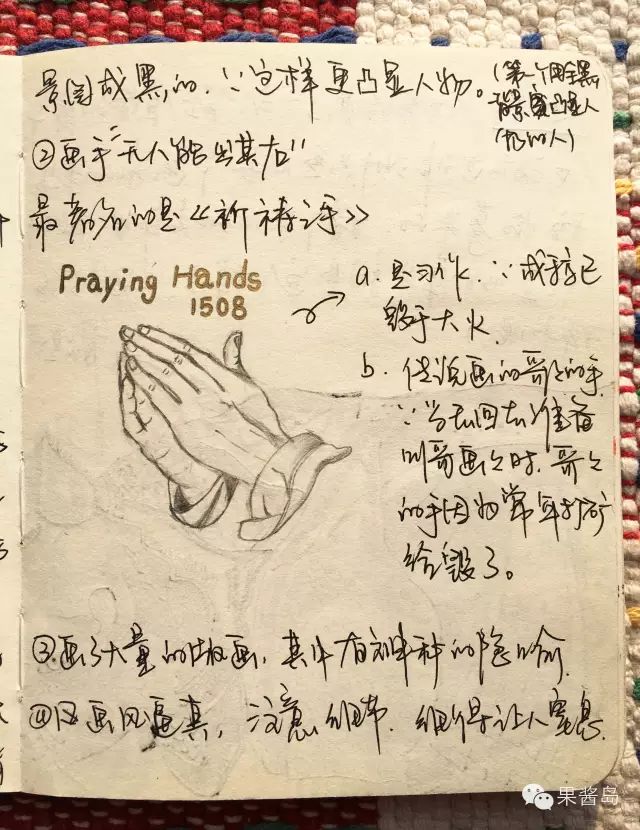 景图成黑的. ∵这样更凸显人物。
(第一个用全黑
背景更凸显人
的人)
②画手"无人能出其右"
最著名的是《祈祷之手》
Praying Hands
1508
a. 是习作. ∵成稿已
毁于大火.
b. 传说画的哥哥的手
∵当去回去准备
叫哥画画时. 哥哥
的手因为常年打矿
给毁了。
③画了大量的版画, 其中有种种的隐喻.
④因画风逼真, 注意细节. 细得让人窒息.
果酱岛